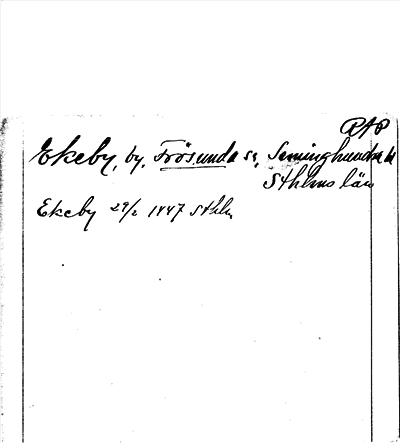 RAP
Ekeby, by, Frösunda sn, Seminghundra hd
Sthlms län
Ekeby 29/2 1447 Sthlm